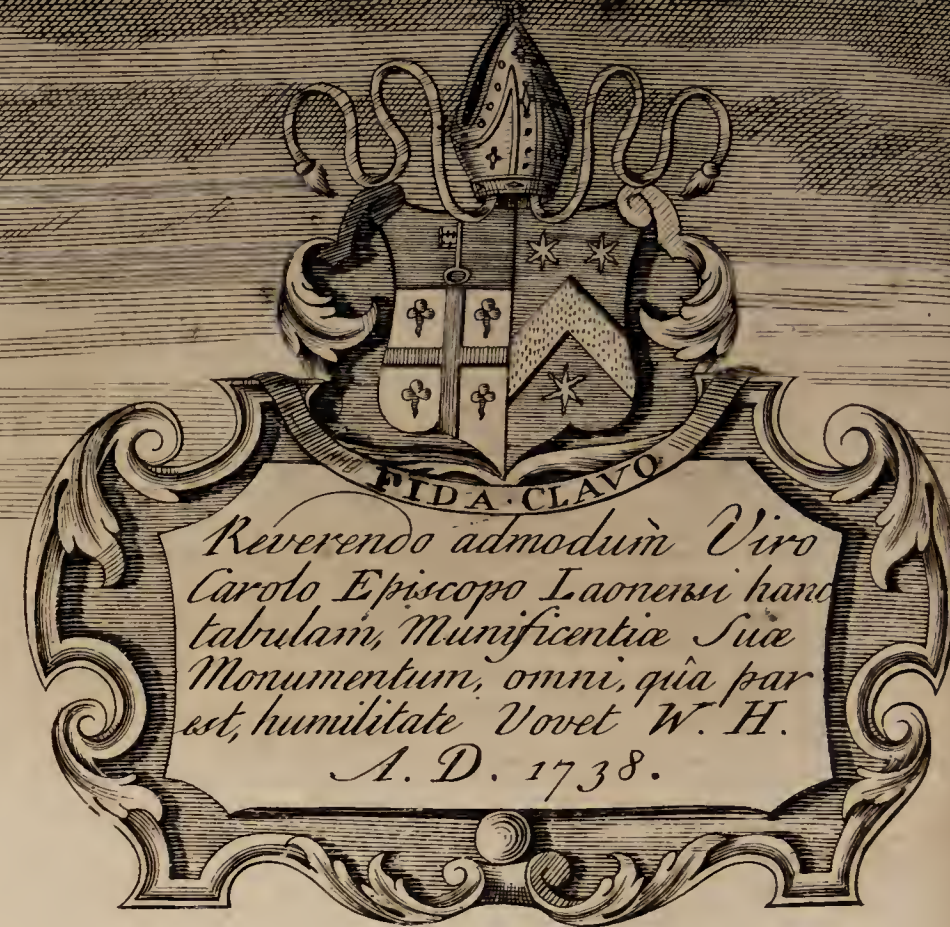 FIDA · CLAVO
Reverendo admodùm Viro
Carolo Episcopo Laonensi hanc
tabulam, Munificentiæ Suæ
Monumentum, omni, quâ par
est, humilitate Vovet W. H.
A. D. 1738.